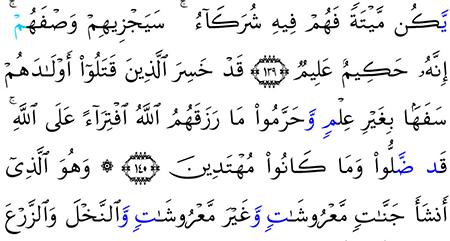 يَّكُن مَّيْتَةً فَهُمْ فِيهِ شُرَكَآءُ ۚ سَيَجْزِيهِمْ وَصْفَهُمْ ۚ
إِنَّهُۥ حَكِيمٌ عَلِيمٌ ﴿١٣٩﴾ قَدْ خَسِرَ ٱلَّذِينَ قَتَلُوٓا۟ أَوْلَـٰدَهُمْ
سَفَهًۢا بِغَيْرِ عِلْمٍ وَّحَرَّمُوا۟ مَا رَزَقَهُمُ ٱللَّهُ ٱفْتِرَآءً عَلَى ٱللَّهِ ۚ
قَد ضَّلُّوا۟ وَمَا كَانُوا۟ مُهْتَدِينَ ﴿١٤٠﴾ ۞ وَهُوَ ٱلَّذِىٓ
أَنشَأَ جَنَّـٰتٍ مَّعْرُوشَـٰتٍ وَّغَيْرَ مَعْرُوشَـٰتٍ وَّٱلنَّخْلَ وَٱلزَّرْعَ